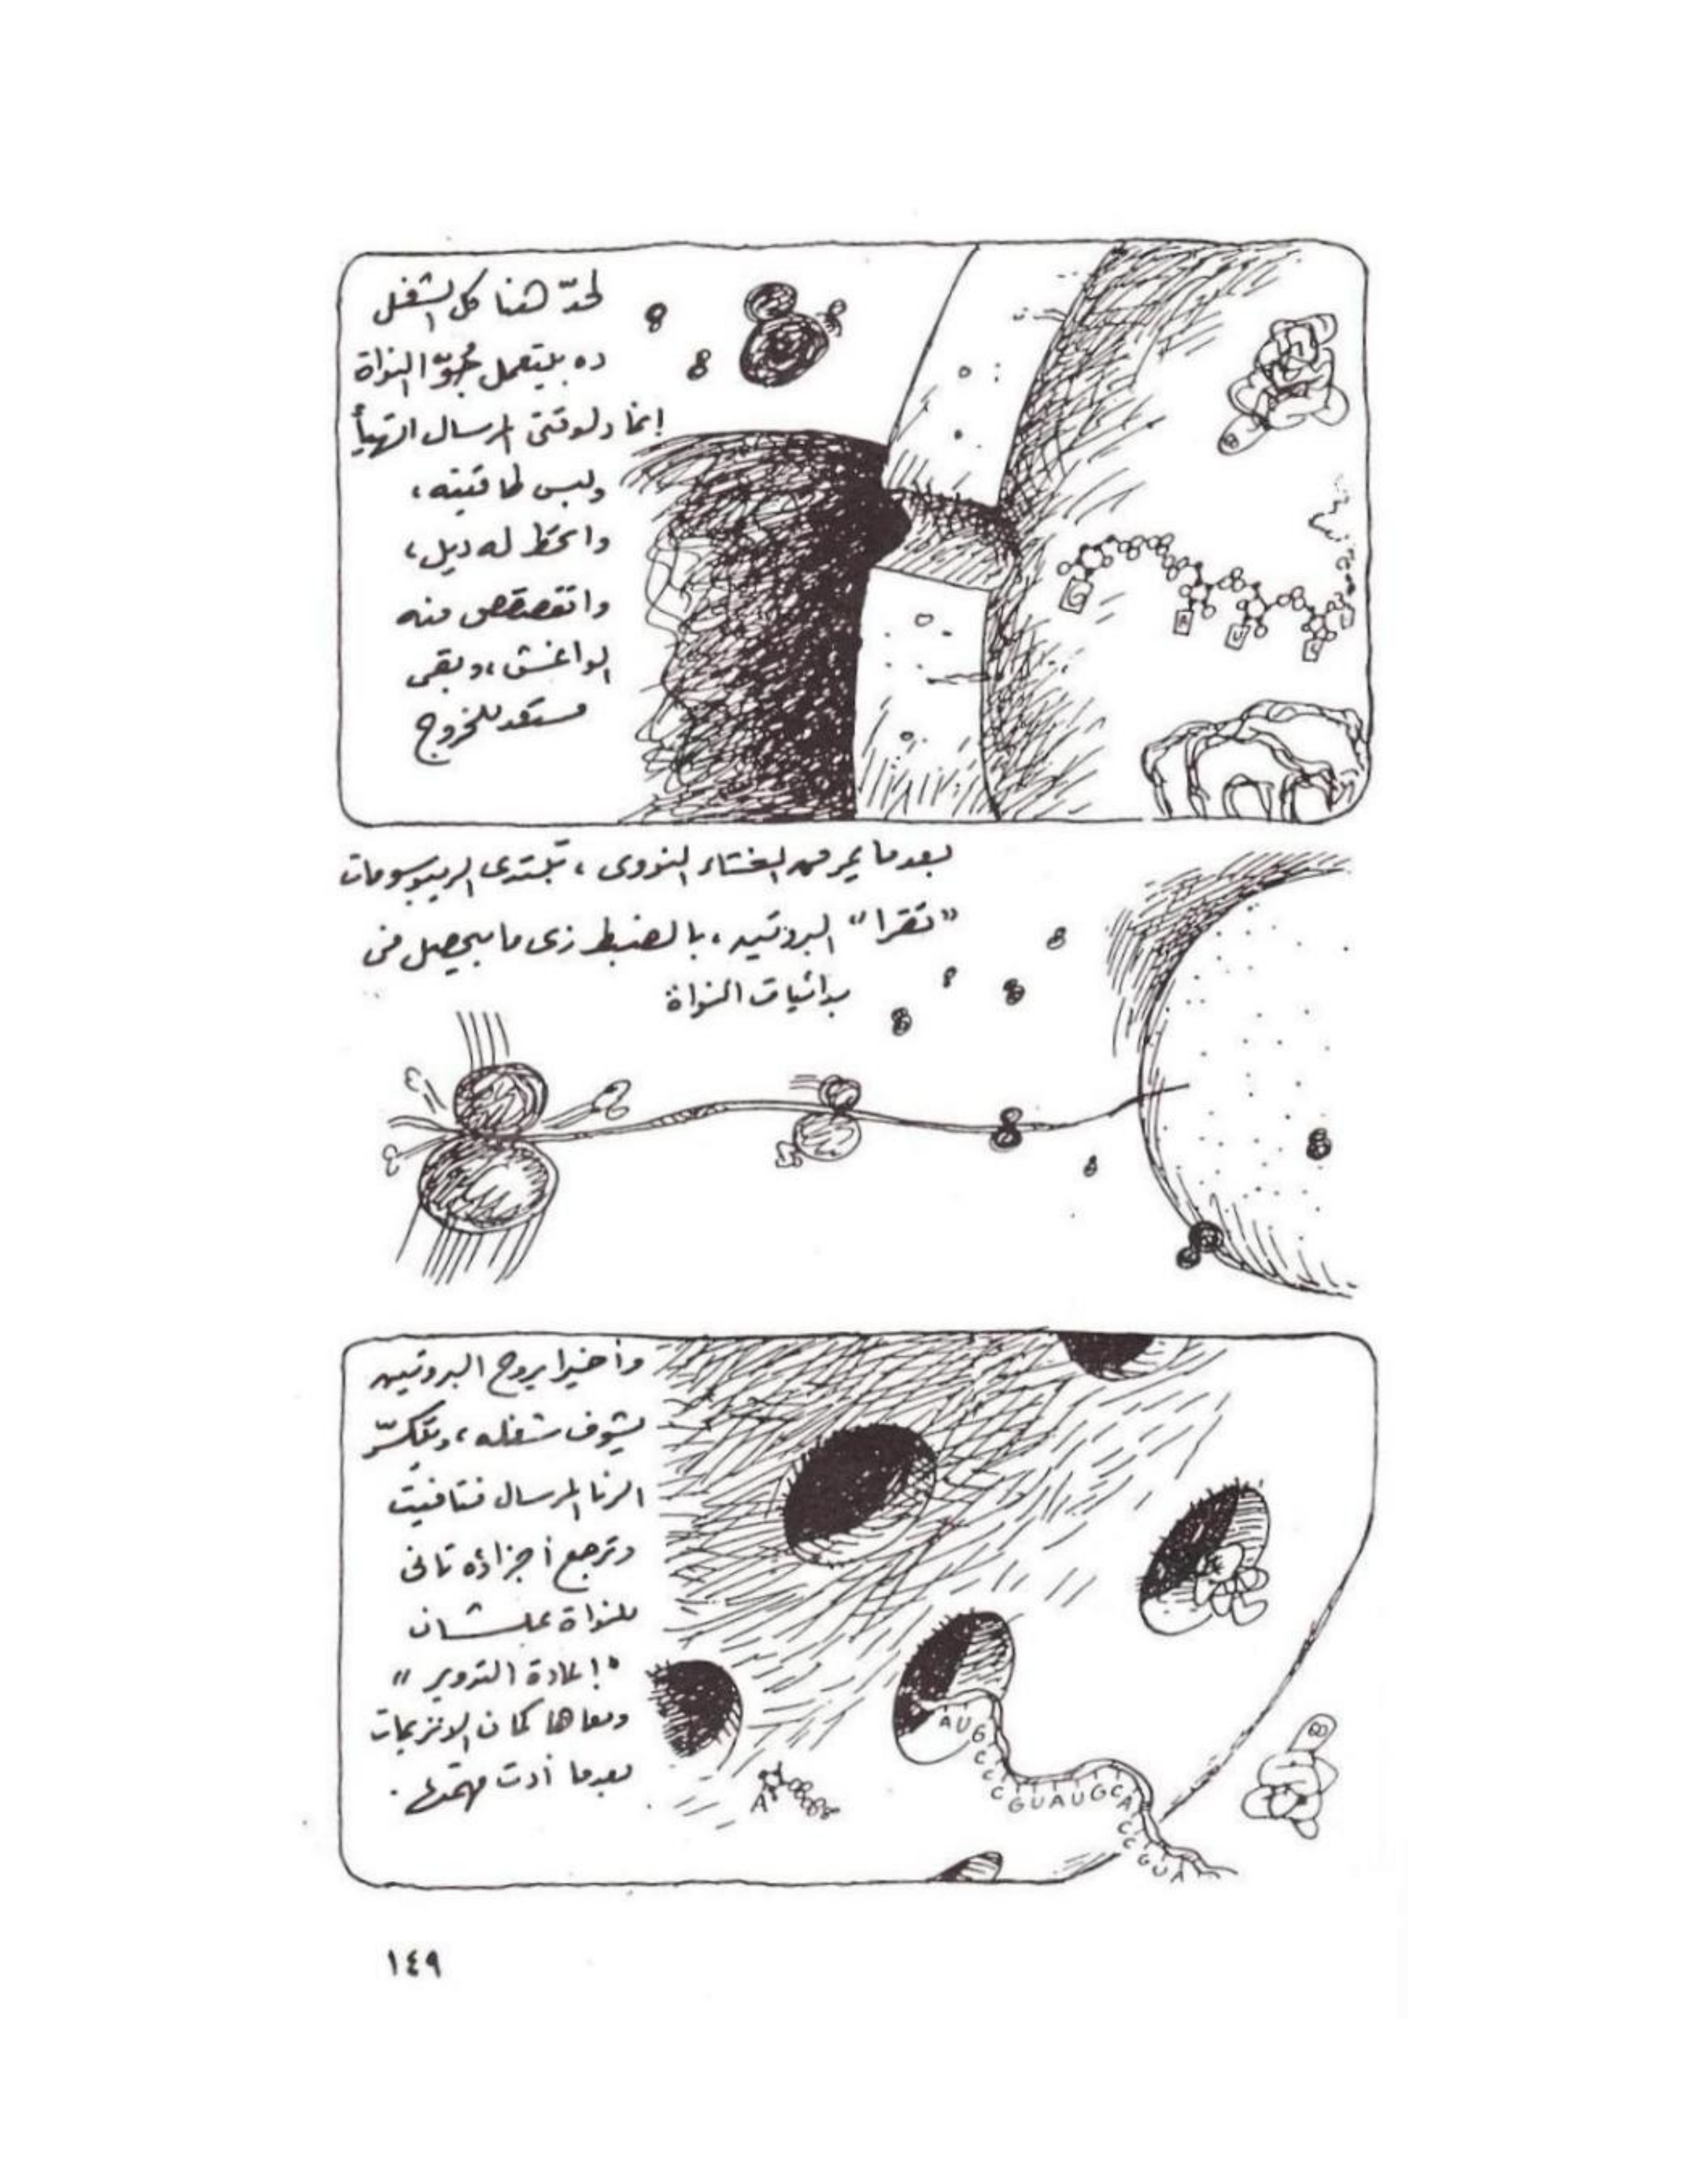 لحدّ هنا كل الشغل
ده بيتعمل جُوّه النواة
إنما دلوقتى المرسال اتهيأ
ولبس طاقيته،
واتحَط له ديل،
واتقصقص منه
الواغش، وبقى
مستعد للخروج
G
A
U
C
بعدما يمر من الغشاء النووى، تبتدى الريبوسومات
"تقرا" البروتين، بالضبط زى ما بيحصل فى
بدائيات النواة
وأخيرا يروح البروتين
يشوف شغله، ويتكسّر
الرنا المرسال فتافيت
وترجع أجزاؤه تانى
للنواة علشان
"إعادة التدوير"
ومعاها كمان الانزيمات
بعدما أدت مهمتها.
A U G C C C G U A U G C A C C G U A
A
١٤٩